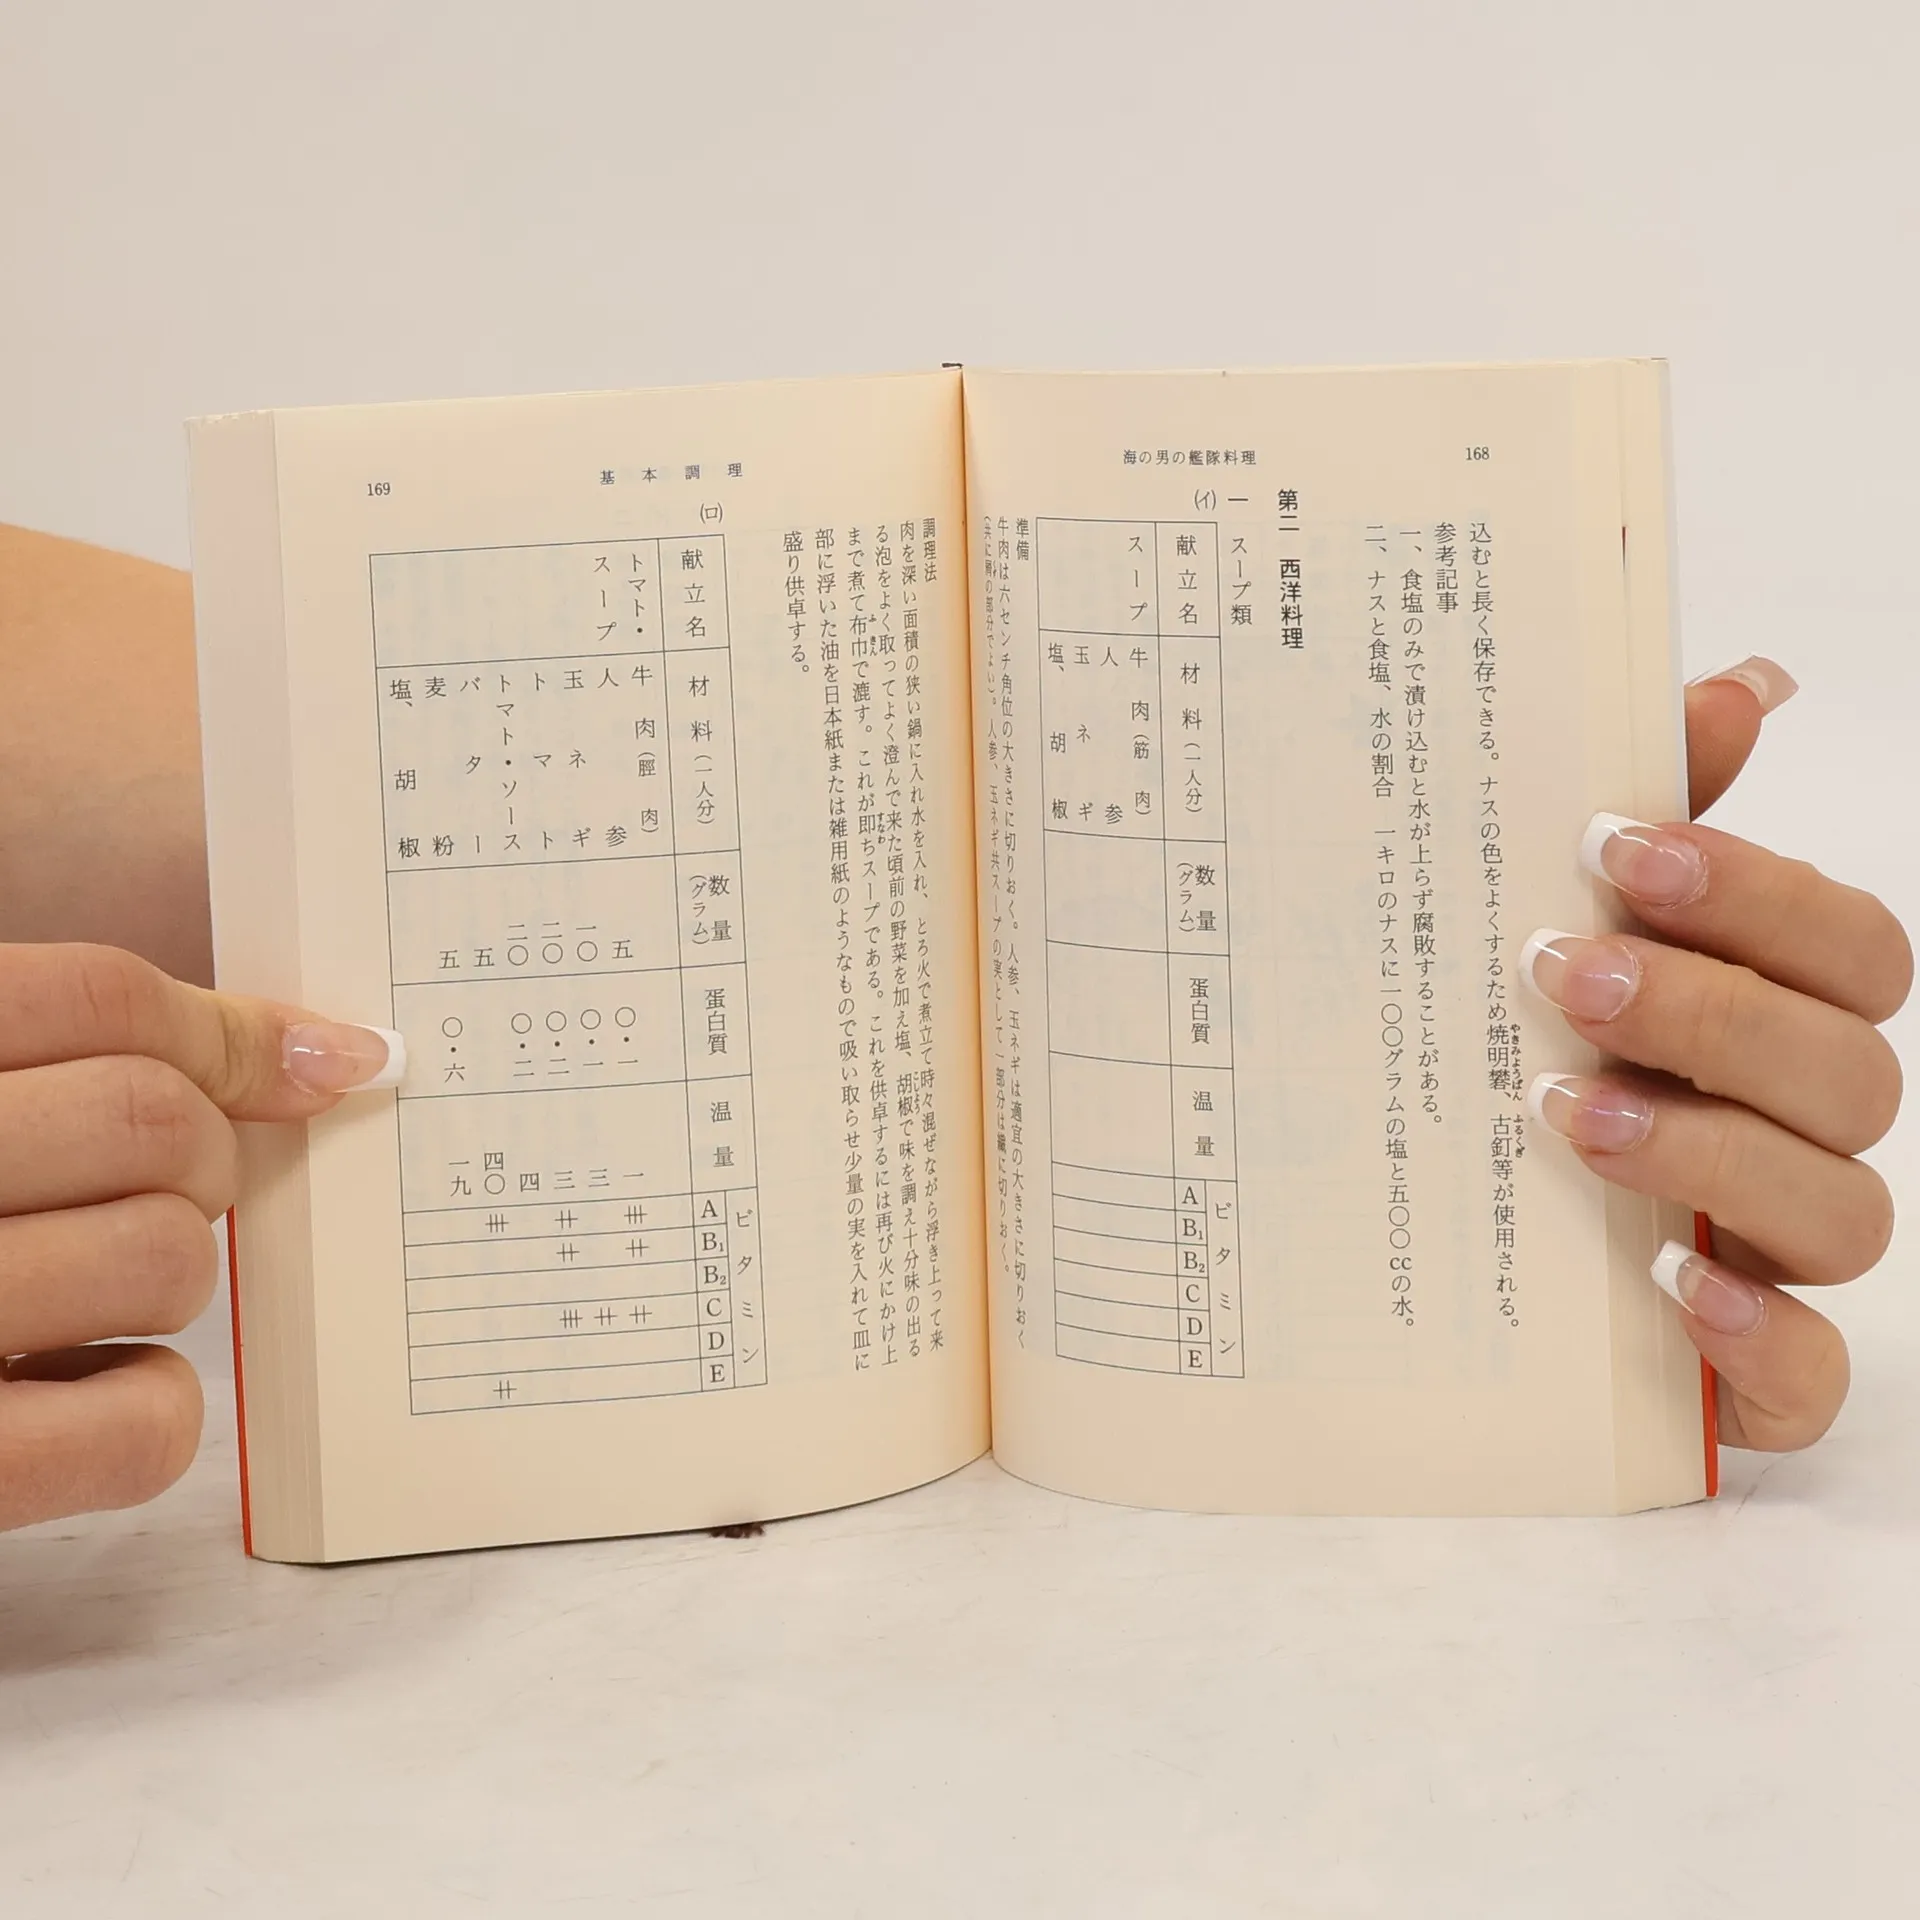 168
海の男の艦隊料理
込むと長く保存できる。ナスの色をよくするため焼明礬、古釘等が使用される。
やきみようばん
ふるくぎ
参考記事
一、食塩のみで漬け込むと水が上らず腐敗することがある。
二、ナスと食塩、水の割合 一キロのナスに一〇〇グラムの塩と五〇〇ccの水。
第二 西洋料理
一 スープ類
(イ)
献立名
材料(一人分)
数量(グラム)
蛋白質
温量
ビタミン
A
B₁
B₂
C
D
E
スープ
牛肉(筋肉)
人参
玉ネギ
塩、胡椒
準備
牛肉は六センチ角位の大きさに切りおく。人参、玉ネギは適宜の大きさに切りおく
(共に屑の部分でよい)。人参、玉ネギ共スープの実として一部分は繊に切りおく。
169
基本調理
調理法
肉を深い面積の狭い鍋に入れ水を入れ、とろ火で煮立て時々混ぜながら浮き上って来
る泡をよく取ってよく澄んで来た頃前の野菜を加え塩、胡椒で味を調え十分味の出る
こしょう
まで煮て布巾で漉す。これが即ちスープである。これを供卓するには再び火にかけ上
ふきん
すなわ
部に浮いた油を日本紙または雑用紙のようなもので吸い取らせ少量の実を入れて皿に
盛り供卓する。
(ロ)
献立名
材料(一人分)
数量(グラム)
蛋白質
温量
ビタミン
A
B₁
B₂
C
D
E
トマト・スープ
牛肉(脛肉)
人参
玉ネギ
トマト
トマト・ソース
バター
麦粉
塩、胡椒
五
一〇
二〇
二〇
五
五
〇・一
〇・一
〇・二
〇・二
〇・六
一
三
三
四
四〇
一九
卅 廾 卅
廾 廾
廾 廾 卅
廾